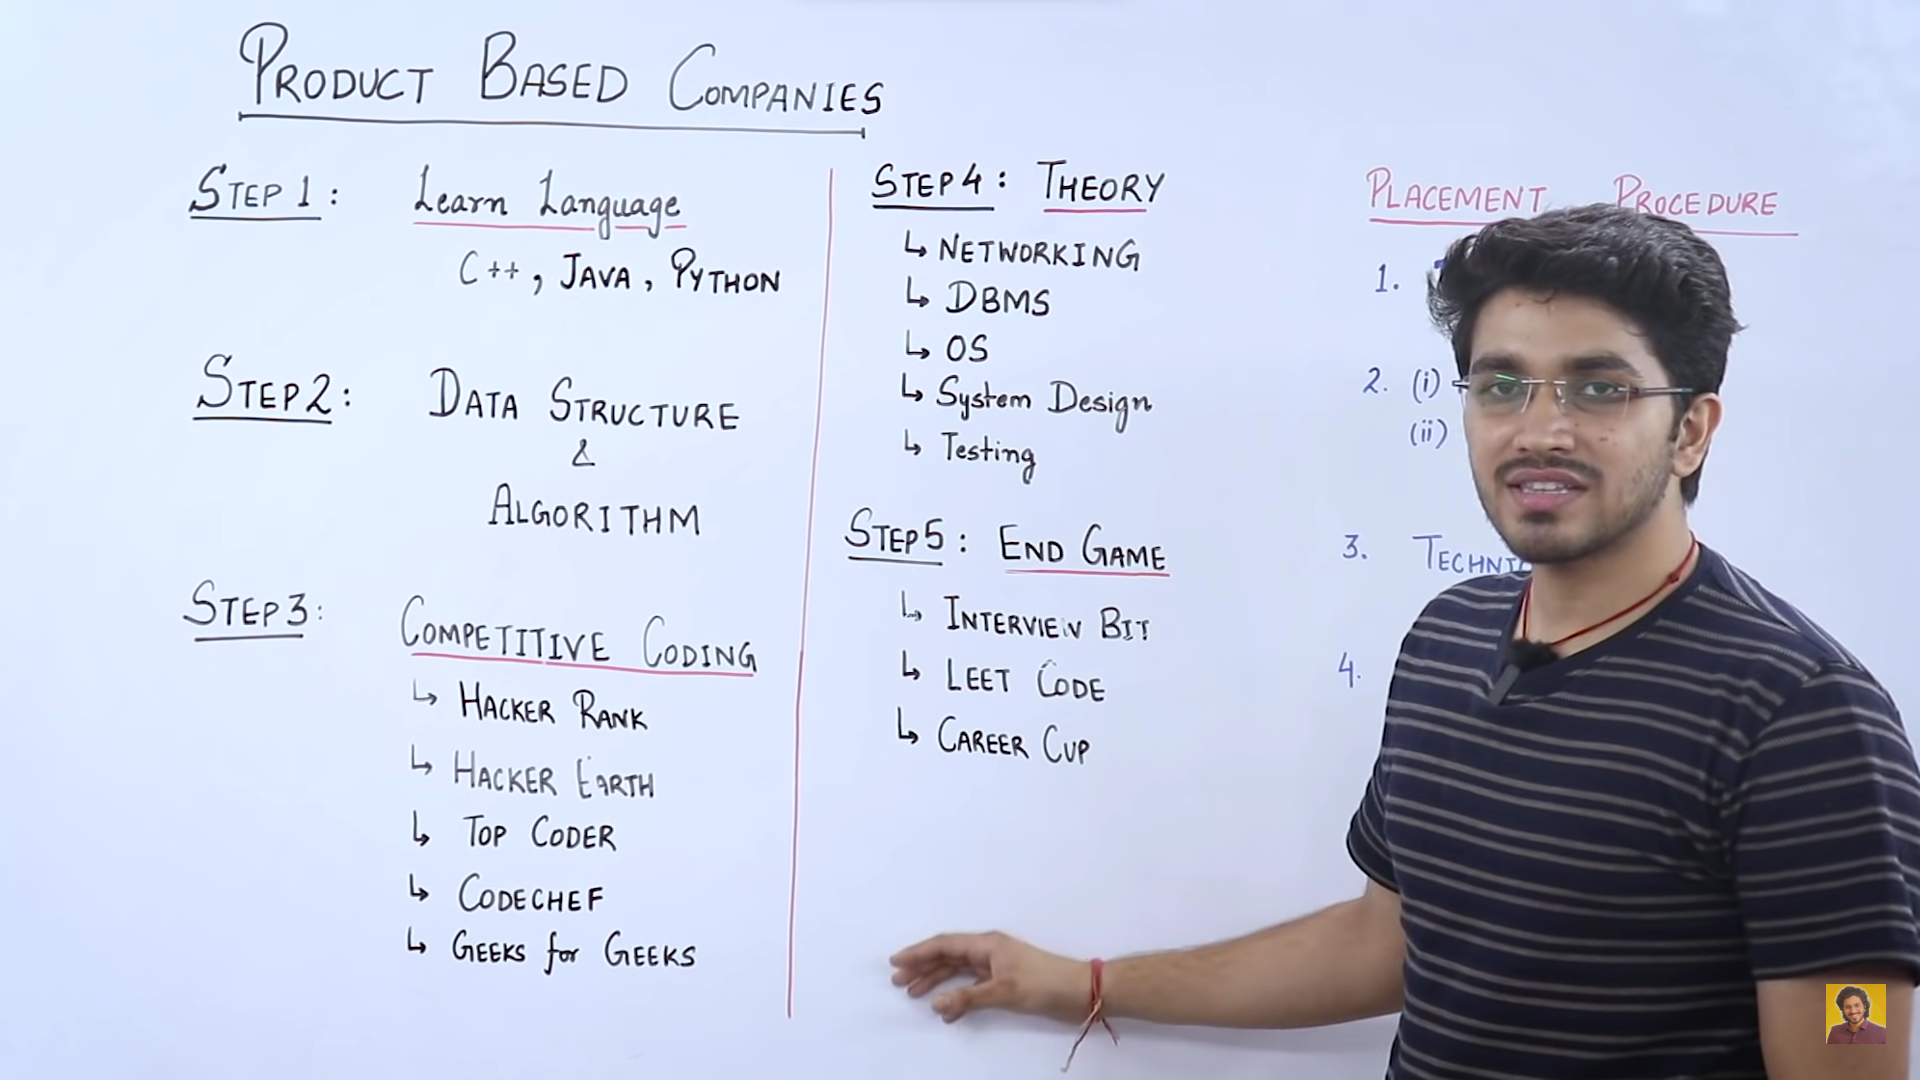 PRODUCT BASED COMPANIES
STEP 1: Learn Language
C++, JAVA, PYTHON
STEP 2: DATA STRUCTURE
&
ALGORITHM
STEP 3: COMPETITIVE CODING
↳ HACKER RANK
↳ HACKER EARTH
↳ TOP CODER
↳ CODECHEF
↳ GEEKS for GEEKS
STEP 4: THEORY
↳ NETWORKING
↳ DBMS
↳ OS
↳ System Design
↳ Testing
STEP 5: END GAME
↳ INTERVIEW BIT
↳ LEET CODE
↳ CAREER CUP
PLACEMENT PROCEDURE
1.
2. (i)
(ii)
3.
4.